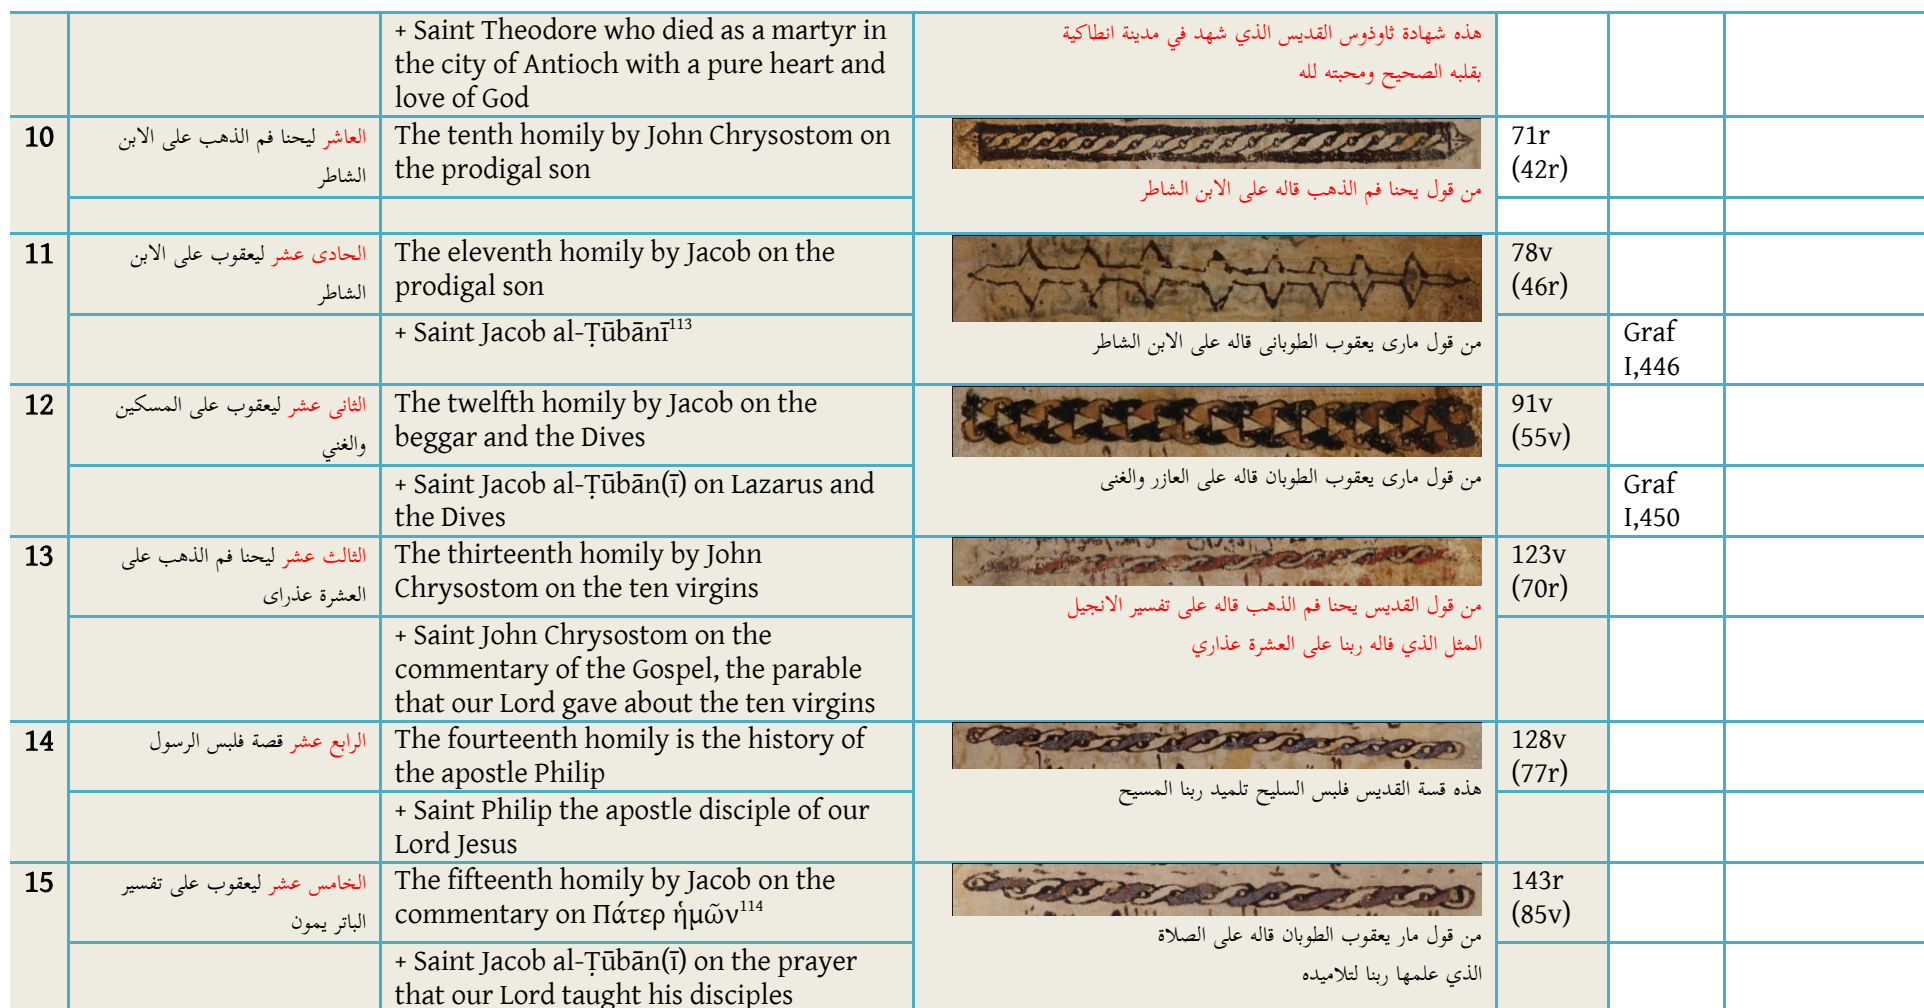 + Saint Theodore who died as a martyr in
the city of Antioch with a pure heart and
love of God
هذه شهادة ثاوذوس القديس الذي شهد في مدينة انطاكية
بقلبه الصحيح ومحبته لله
10
العاشر ليحنا فم الذهب على الابن
الشاطر
The tenth homily by John Chrysostom on
the prodigal son
من قول يحنا فم الذهب قاله على الابن الشاطر
71r
(42r)
11
الحادى عشر ليعقوب على الابن
الشاطر
The eleventh homily by Jacob on the
prodigal son
78v
(46r)
+ Saint Jacob al-Ṭūbānī113
من قول مارى يعقوب الطوبانى قاله على الابن الشاطر
Graf
I,446
12
الثانى عشر ليعقوب على المسكين
والغني
The twelfth homily by Jacob on the
beggar and the Dives
91v
(55v)
+ Saint Jacob al-Ṭūbān(ī) on Lazarus and
the Dives
من قول مارى يعقوب الطوبان قاله على العازر والغنى
Graf
I,450
13
الثالث عشر ليحنا فم الذهب على
العشرة عذراى
The thirteenth homily by John
Chrysostom on the ten virgins
من قول القديس يحنا فم الذهب قاله على تفسير الانجيل
المثل الذي فاله ربنا على العشرة عذاري
123v
(70r)
+ Saint John Chrysostom on the
commentary of the Gospel, the parable
that our Lord gave about the ten virgins
14
الرابع عشر قصة فلبس الرسول
The fourteenth homily is the history of
the apostle Philip
هذه قسة القديس فلبس السليح تلميد ربنا المسيح
128v
(77r)
+ Saint Philip the apostle disciple of our
Lord Jesus
15
الخامس عشر ليعقوب على تفسير
الباتر يمون
The fifteenth homily by Jacob on the
commentary on Πάτερ ἡμῶν114
143r
(85v)
من قول مار يعقوب الطوبان قاله على الصلاة
الذي علمها ربنا لتلاميده
+ Saint Jacob al-Ṭūbān(ī) on the prayer
that our Lord taught his disciples